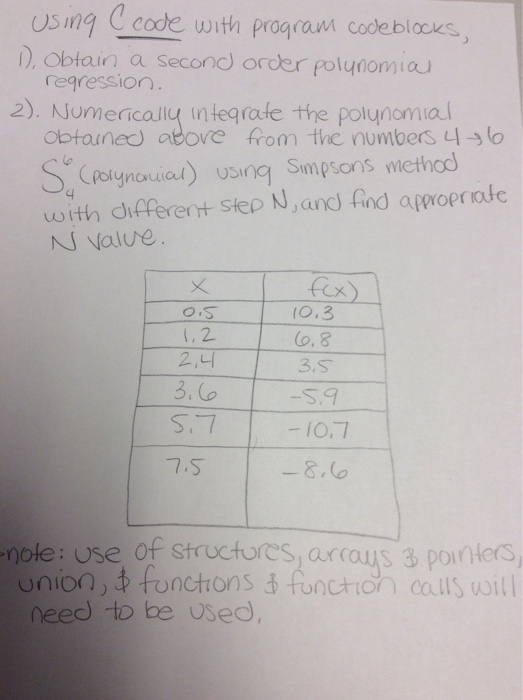 Using C code with program codeblocks,
1). Obtain a second order polynomial
regression.
2). Numerically integrate the polynomial
obtained above from the numbers 4→6
S⁶₄ (polynomial) using Simpsons method
with different step N, and find appropriate
N value.
x f(x)
0.5 10.3
1.2 6.8
2.4 3.5
3.6 -5.9
5.7 -10.7
7.5 -8.6
-note: use of structures, arrays & pointers,
union, & functions & function calls will
need to be used.